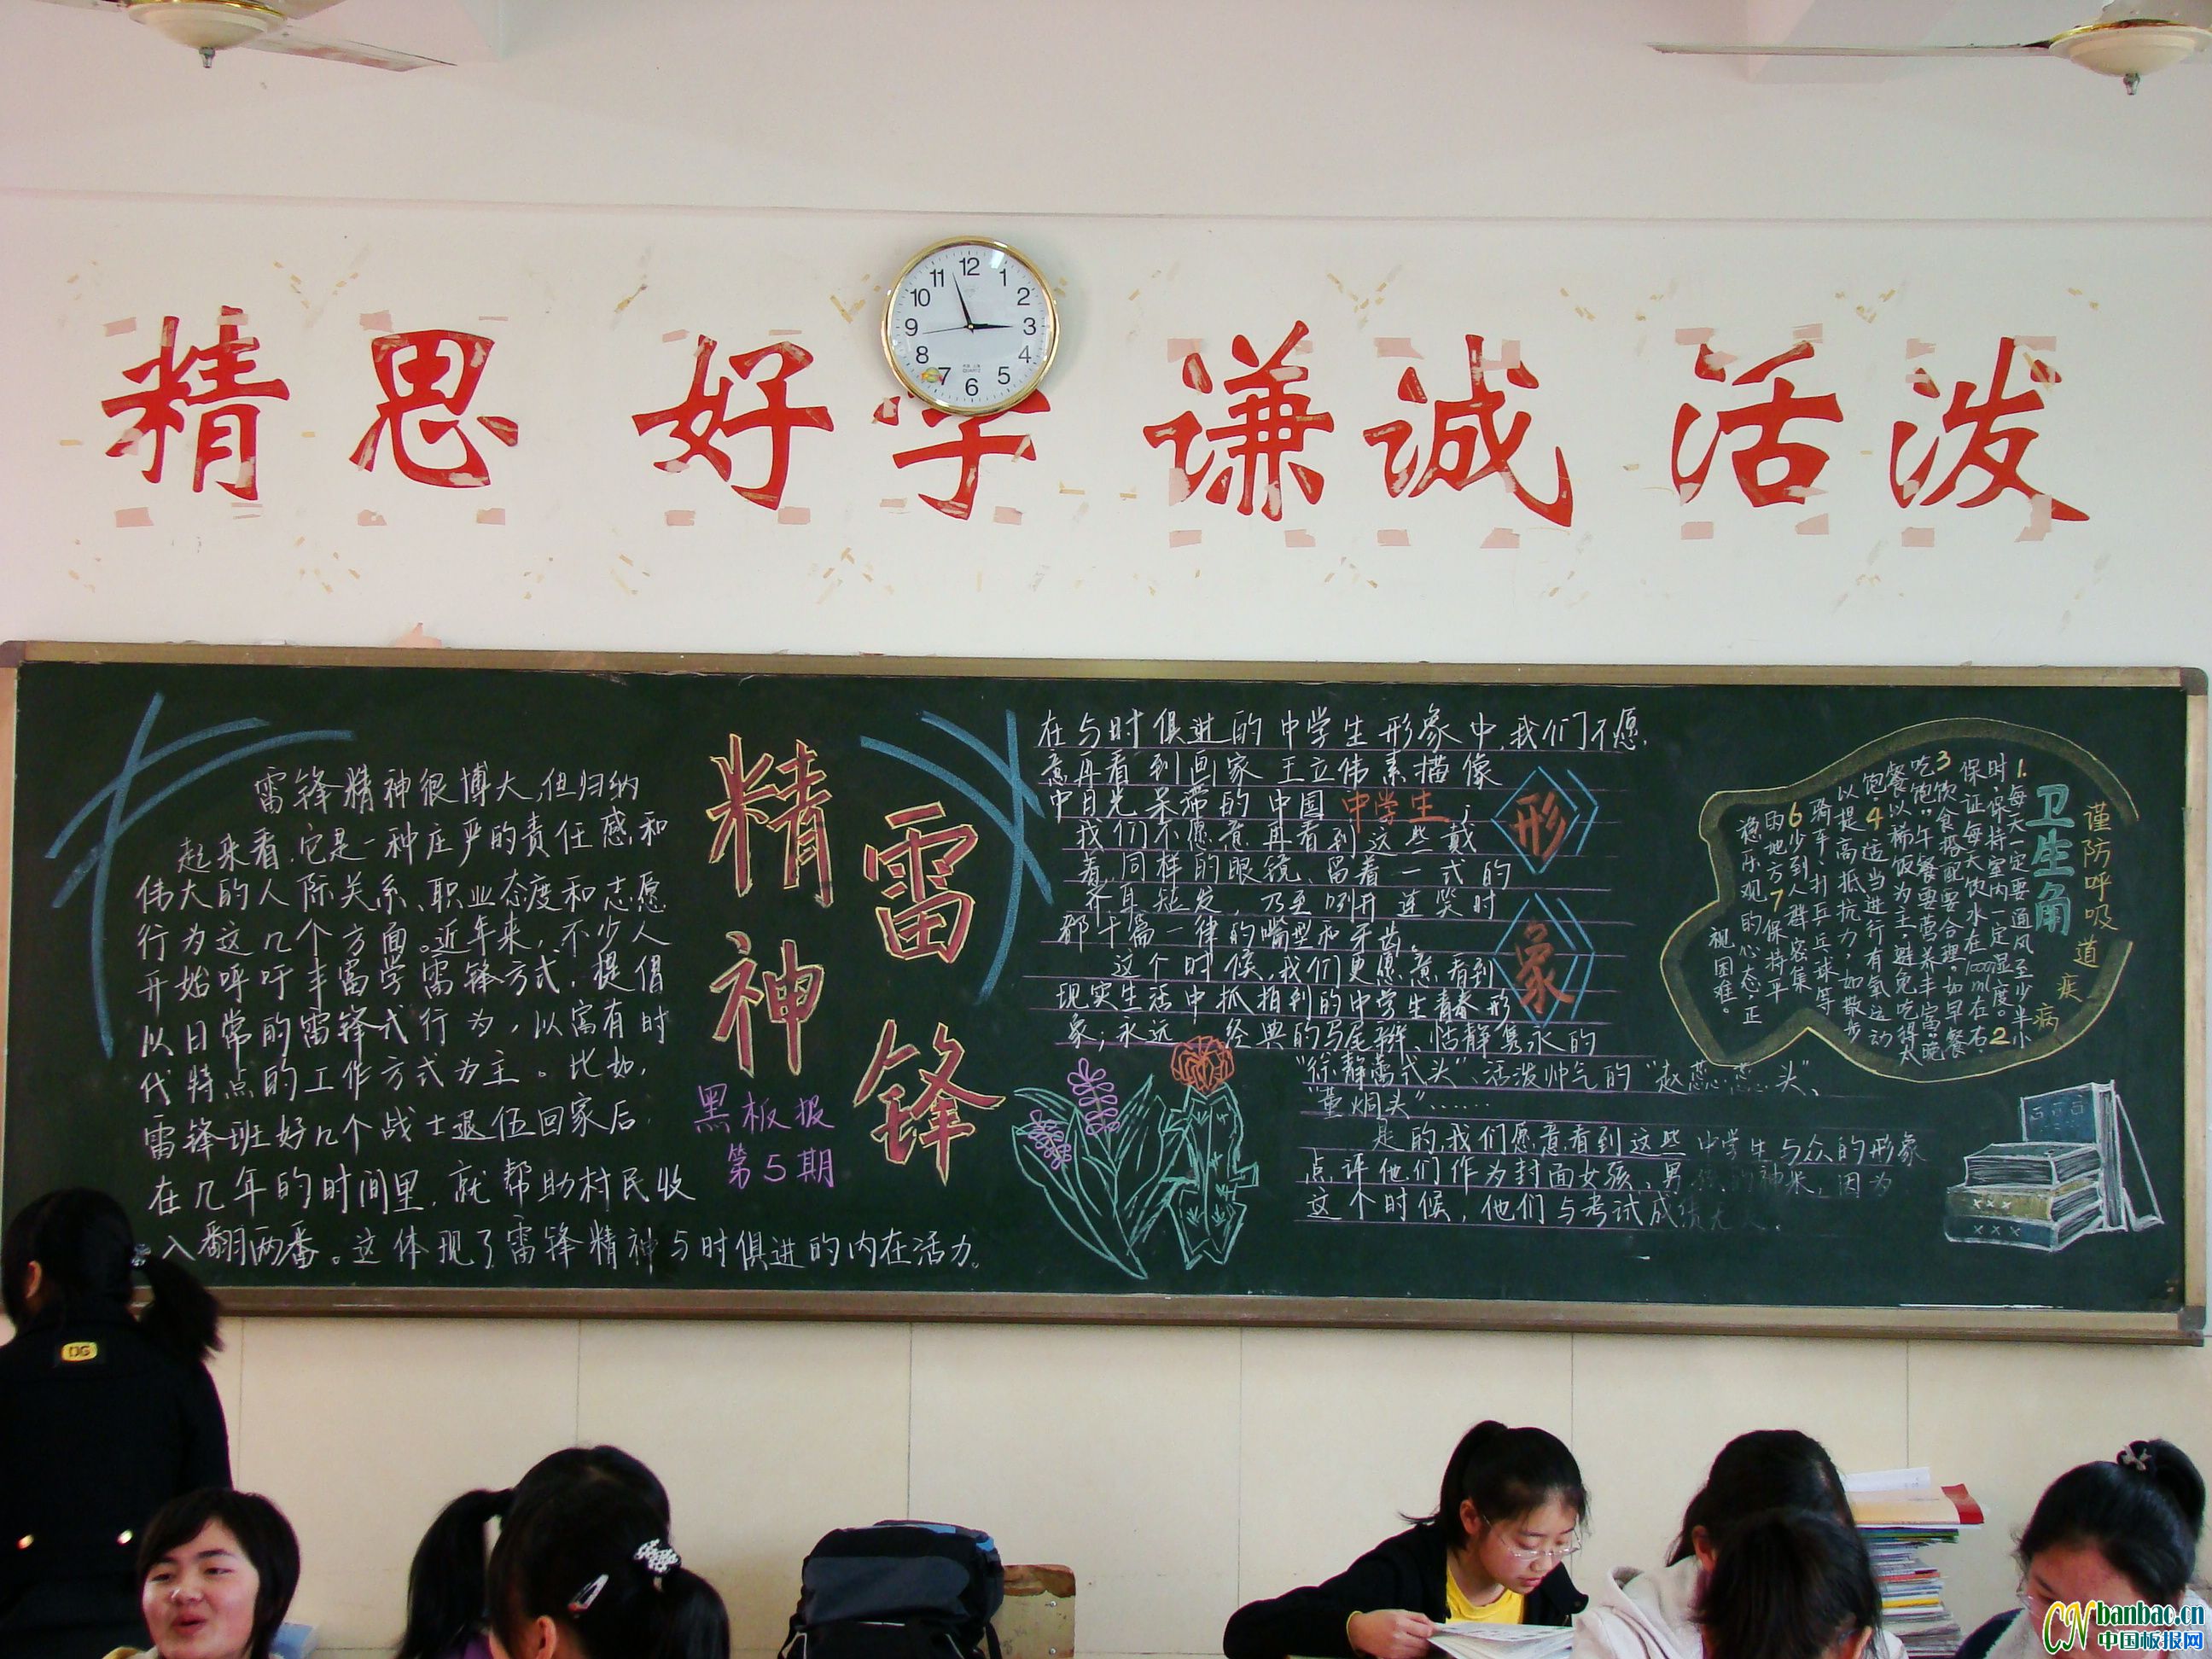 精思 好学 谦诚 活泼
12
1
2
3
4
5
6
7
8
9
10
11
雷锋精神很博大,但归纳
起来看,它是一种庄严的责任感,和
伟大的人际关系、职业态度和志愿
行为这几个方面。近年来,不少人
开始呼吁丰富学雷锋方式,提倡
以日常的雷锋式行为,以富有时
代特点的工作方式为主。比如,
雷锋班好几个战士退伍回家后,
在几年的时间里,就帮助村民收
入翻两番。这体现了雷锋精神与时俱进的内在活力。
雷锋
精神
黑板报
第5期
在与时俱进的中学生形象中,我们不愿
意再看到画家王立伟素描像
中目光呆滞的中国中学生;
我们不愿意再看到这些戴
着同样的眼镜、留着一式的
齐耳短发,乃至咧开连笑时
都千篇一律的嘴型和牙齿。
这个时候,我们更愿意看到
现实生活中抓拍到的中学生青春形
象;永远 经典的马尾辫、恬静隽永的
"徐静蕾式头"、活泼帅气的"赵蕊蕊头"、
"董炯头"……
是的,我们愿意看到这些中学生与众的形象
点评他们作为封面女孩、男 的神采,因为
这个时候,他们与考试成绩无
形象
谨防呼吸道疾病
卫生角
1.每天一定要通风至少半小
时,保持室内一定湿度。2
保证每天饮水在1000ml左右.
3饮食搭配要合理,如早餐
吃饱,午餐要营养丰富,晚
餐以稀饭为主,避免吃得太
饱.4适当进行有氧运动
以提高抵抗力,如散步
骑车、打乒乓球等
6少到人群密集
的地方7保持平
稳乐观的心态,正
视困难。
DG
CN
banbao.cn
中国板报网